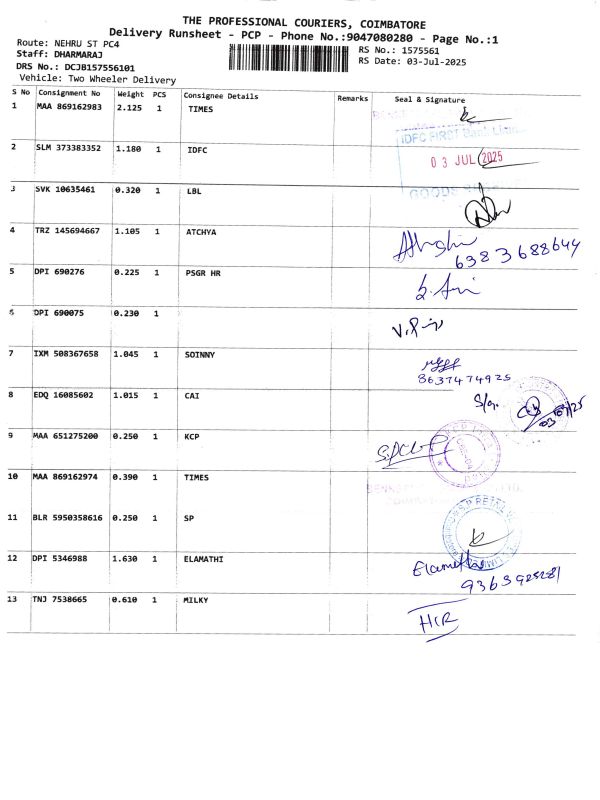 THE PROFESSIONAL COURIERS, COIMBATORE
Delivery Runsheet - PCP - Phone No.:9047080280 - Page No.:1
Route: NEHRU ST PC4
Staff: DHARMARAJ
DRS No.: DCJB157556101
Vehicle: Two Wheeler Delivery
RS No.: 1575561
RS Date: 03-Jul-2025
S No Consignment No Weight PCS Consignee Details Remarks Seal & Signature
1 MAA 869162983 2.125 1 TIMES
2 SLM 373383352 1.180 1 IDFC
IDFC FIRST Bank
03 JUL 2025
GOODS
3 SVK 10635461 0.320 1 LBL
4 TRZ 145694667 1.105 1 ATCHYA
6383688644
5 DPI 690276 0.225 1 PSGR HR
6 DPI 690075 0.230 1
7 IXM 508367658 1.045 1 SOINNY
8637474925
8 EDQ 16085602 1.015 1 CAI
9 MAA 651275200 0.250 1 KCP
10 MAA 869162974 0.390 1 TIMES
11 BLR 5950358616 0.250 1 SP
12 DPI 5346988 1.630 1 ELAMATHI
13 TNJ 7538665 0.610 1 MILKY